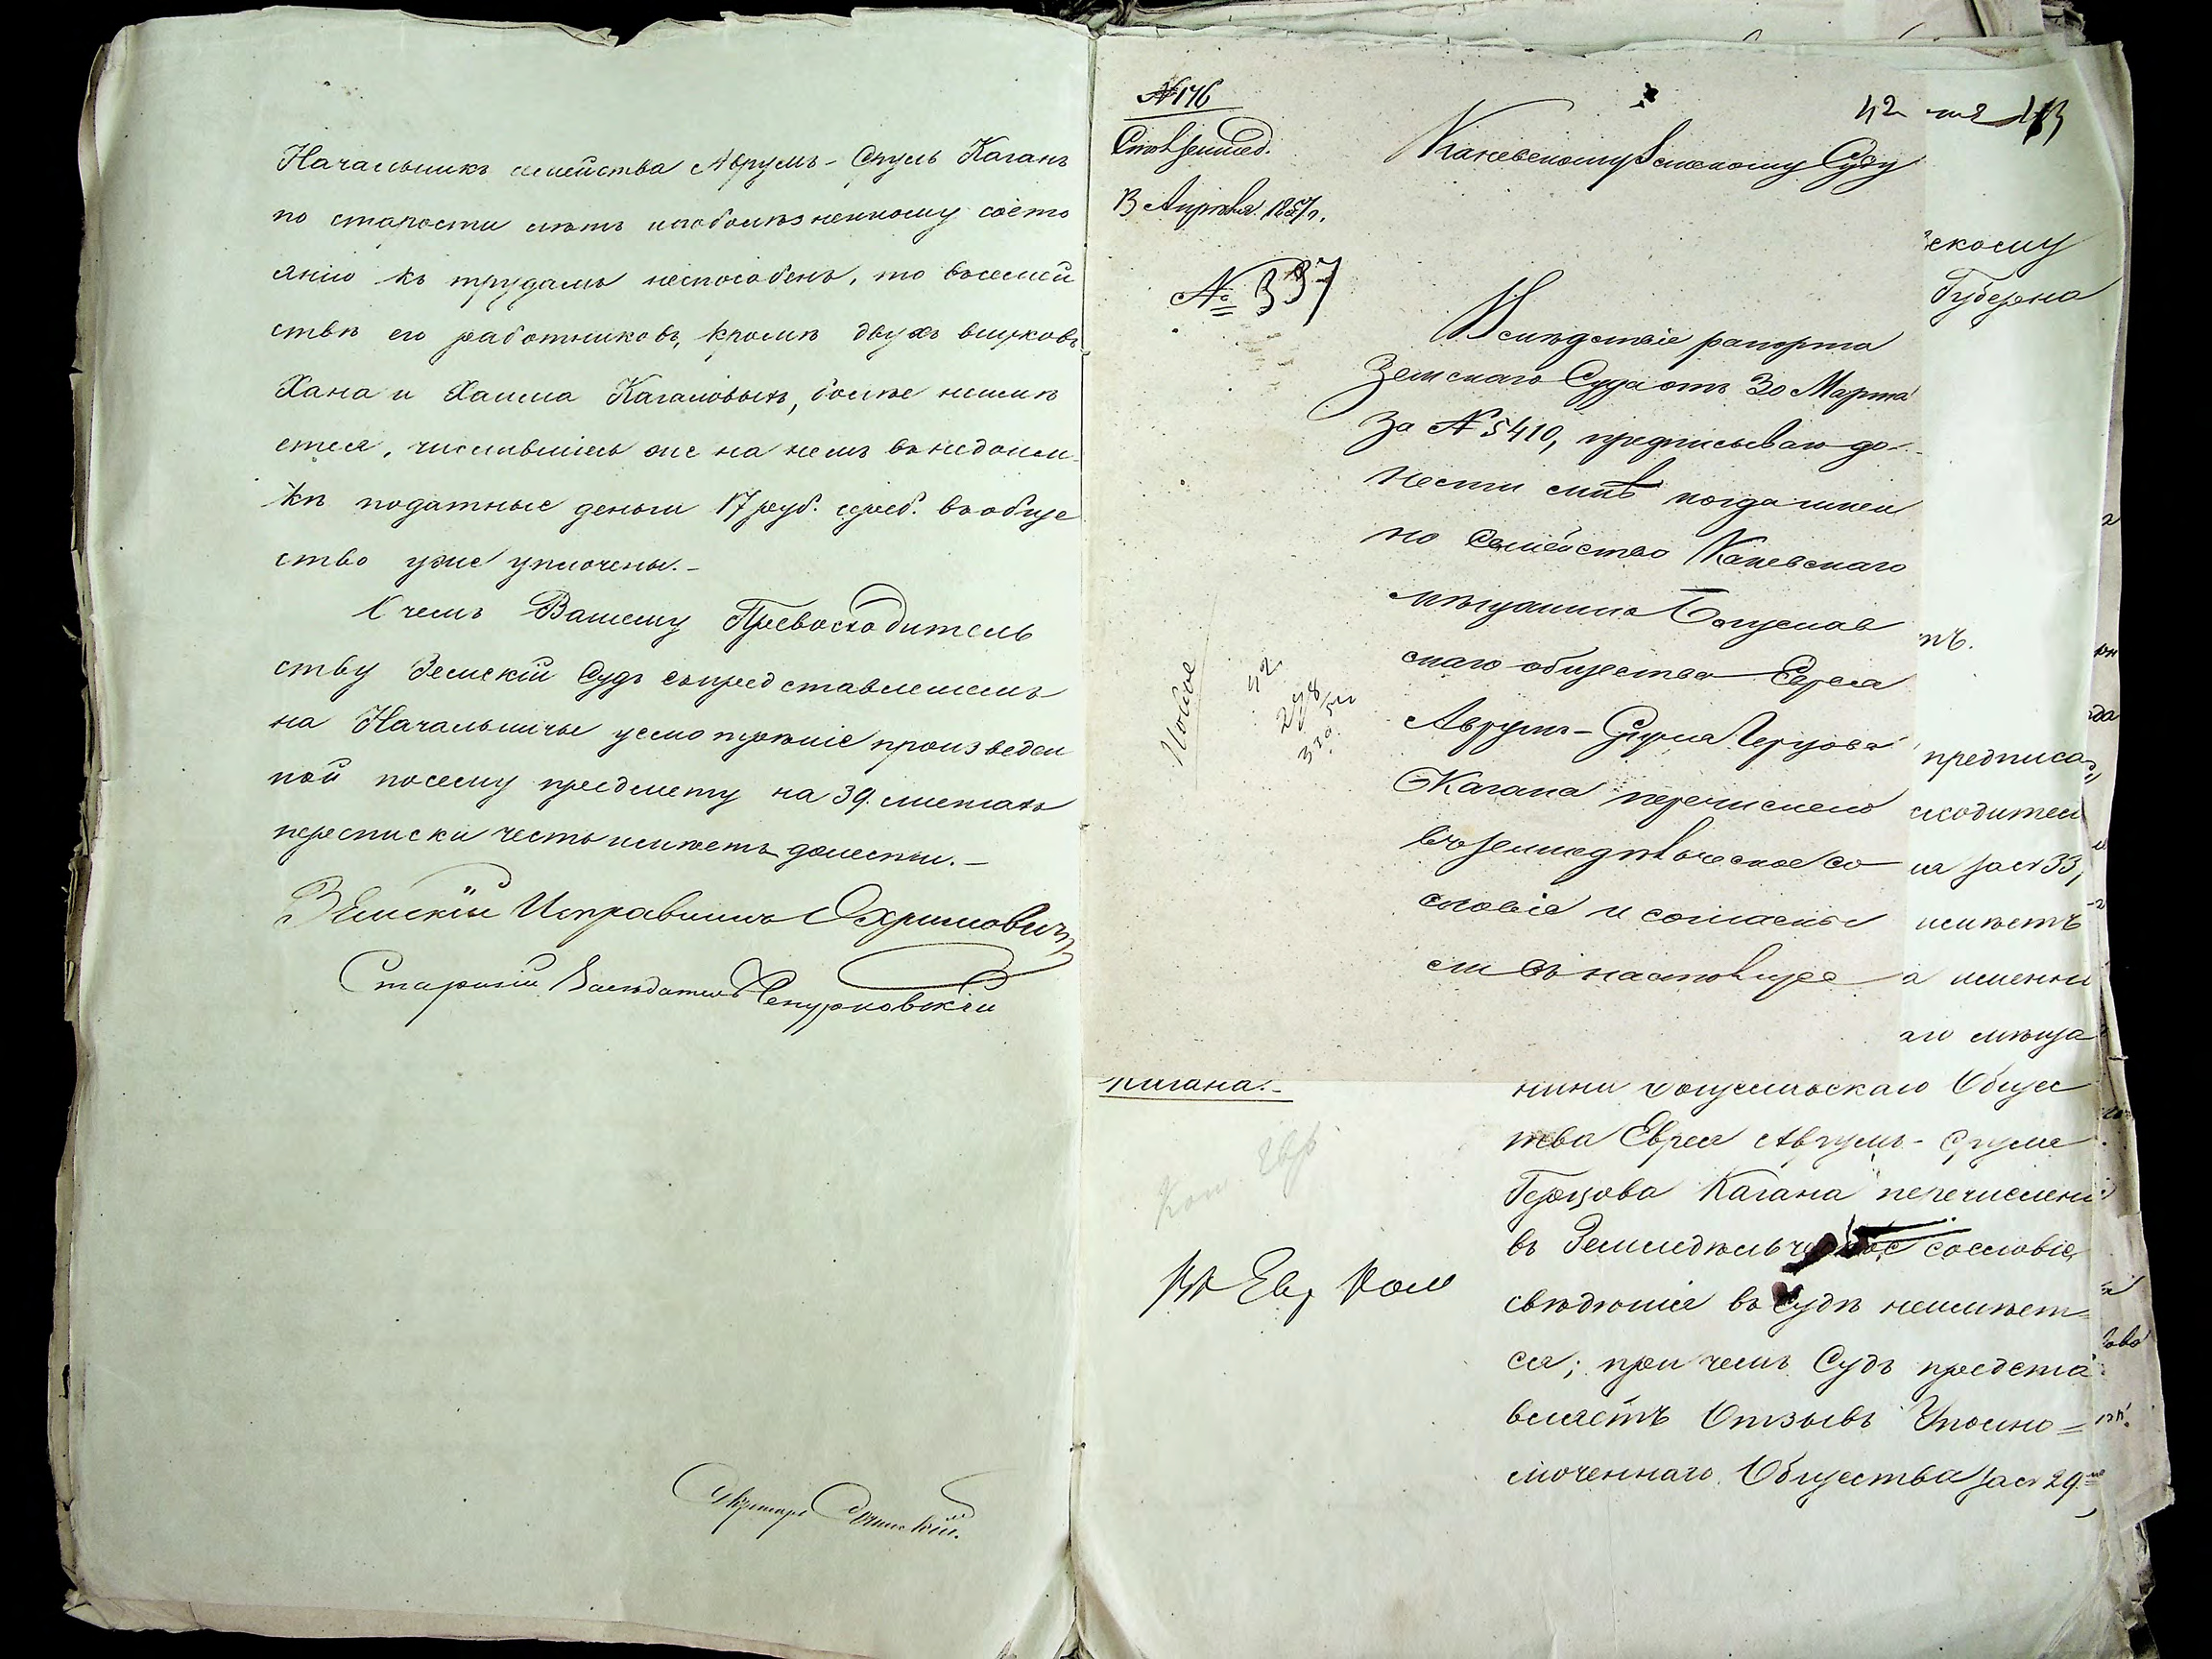 Начальникъ семейства Аврумъ-Сруль Каганъ
по старости лѣтъ и по болѣзненному состо
янію къ трудамъ неспособенъ, то въ семей
ствѣ его работниковъ, кромѣ двухъ внуковъ
Хана и Хаима Кагановыхъ, болѣе неимѣ
ется, числившіесь же на немъ въ недоим
кѣ податные деньги 17 руб. сереб. въ обще
ство уже уплочены.-
О чемъ Вашему Превосходитель
ству Земскій Судъ съ представленіемъ
на Начальничье усмотреніе произведен
ной посему предмету на 39. листахъ
переписки честь имѣетъ донести.-
Земскій Исправникъ Охримовичъ
Старшій Засѣдатель
Секретарь
№ 176
Стол земlед.
13 Апрѣля 1857 г.
№ 337
42
Каневскому Земскому Суду
Вслѣдствіе рапорта
Земскаго Суда отъ 30 Марта
за № 5410, предписываю до-
нести мнѣ когда имен
но Семейство Каневскаго
мѣщанина Богуслав
скаго общества Еврея
Аврумъ-Сруля Герцова
Кагана перечислено
въ земледѣльческое со
словіе и согласны
ли въ настоящее
42
278
скому
Губерна
предписа
сходител
за № 33,
имѣетъ
а именно
аго мѣща
Кагана.-
нина Богуславскаго Общес
тва Еврея Аврумъ-Сруля
Герцова Кагана перечислено
въ Земледѣльческое сословіе,
свѣдѣнія въ Судѣ неимѣет=
ся; при чемъ Судъ предста
вляетъ Отзывъ Уполно=
моченнаго Общества за № 29.